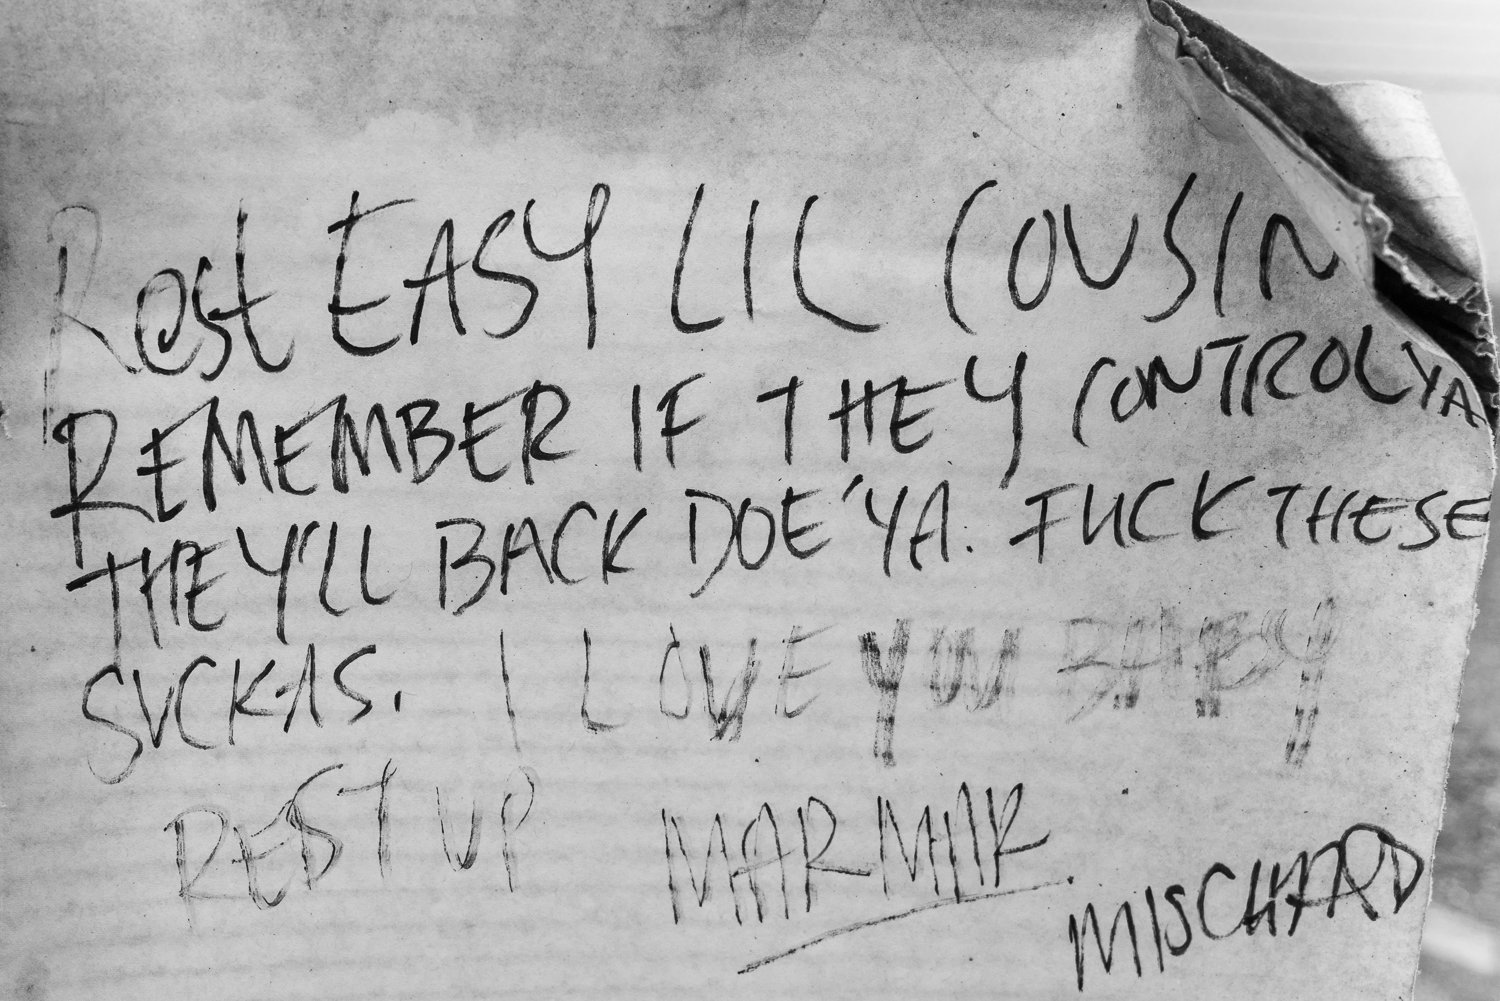 Rest EASY LIL COUSIN
REMEMBER IF THEY CONTROL YA
THEY'LL BACK DOE' YA. FUCK THESE
SUCKAS. I LOVE YOU BABY
REST UP MAR MAR.
MISCHARD